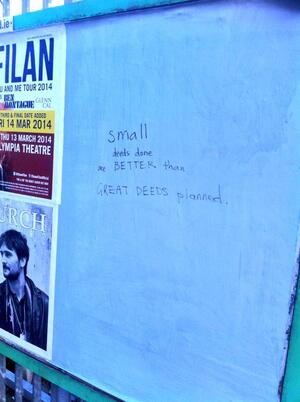 .ie
FILAN
U AND ME TOUR 2014
BEN
MONTAGUE
GLENN
CAL
THIRD & FINAL DATE ADDED
FRI 14 MAR 2014
THU 13 MARCH 2014
OLYMPIA THEATRE
URCH
small
deeds done
are BETTER than
GREAT DEEDS planned.